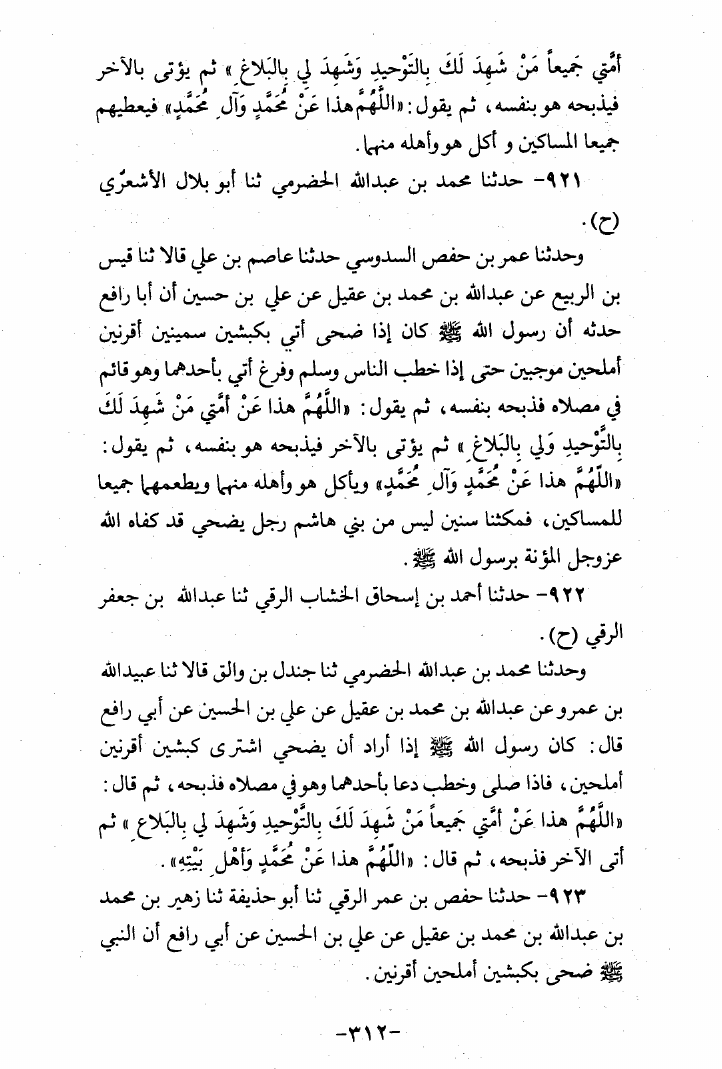 أُمَّتِي جَمِيعاً مَنْ شَهِدَ لَكَ بِالتَوْحيدِ وَشَهِدَ لِي بِالبَلاغِ» ثم يؤتى بالآخر
فيذبحه هو بنفسه، ثم يقول: «اللَّهُمَّ هذا عَنْ مُحَمَّدٍ وَآلِ مُحَمَّدٍ» فيعطيهم
جميعا المساكين و أكل هو وأهله منهما.
٩٢١- حدثنا محمد بن عبدالله الحضرمي ثنا أبو بلال الأشعرّي
(ح).
وحدثنا عمر بن حفص السدوسي حدثنا عاصم بن علي قالا ثنا قيس
بن الربيع عن عبدالله بن محمد بن عقيل عن علي بن حسين أن أبا رافع
حدثه أن رسول الله ﷺ كان إذا ضحى أتي بكبشين سمينين أقرنين
أملحين موجبين حتى إذا خطب الناس وسلم وفرغ أتي بأحدهما وهو قائم
في مصلاه فذبحه بنفسه، ثم يقول: «اللَّهُمَّ هذا عَنْ أمَّتي مَنْ شَهِدَ لَكَ
بِالتَّوْحيدِ وَلي بِالبَلاغِ» ثم يؤتى بالآخر فيذبحه هو بنفسه، ثم يقول:
«اللَّهُمَّ هذا عَنْ مُحَمَّدٍ وَآلِ مُحَمَّدٍ» ويأكل هو وأهله منهما ويطعمهما جميعا
للمساكين، فمكثنا سنين ليس من بني هاشم رجل يضحي قد كفاه الله
عزوجل المؤنة برسول الله ﷺ.
٩٢٢- حدثنا أحمد بن إسحاق الخشاب الرقي ثنا عبدالله بن جعفر
الرقي (ح).
وحدثنا محمد بن عبدالله الحضرمي ثنا جندل بن والق قالا ثنا عبيدالله
بن عمرو عن عبدالله بن محمد بن عقيل عن علي بن الحسين عن أبي رافع
قال: كان رسول الله ﷺ إذا أراد أن يضحي اشترى كبشين أقرنين
أملحين، فاذا صلى وخطب دعا بأحدهما وهو في مصلاه فذبحه، ثم قال:
«اللَّهُمَّ هذا عَنْ أمَّتي جَمِيعاً مَنْ شَهِدَ لَكَ بِالتَّوْحيدِ وَشَهِدَ لي بِالبَلاعِ» ثم
أتى الآخر فذبحه، ثم قال: «اللَّهُمَّ هذا عَنْ مُحَمَّدٍ وَأهْلِ بَيْتِهِ».
٩٢٣- حدثنا حفص بن عمر الرقي ثنا أبو حذيفة ثنا زهير بن محمد
بن عبدالله بن محمد بن عقيل عن علي بن الحسين عن أبي رافع أن النبي
ﷺ ضحى بكبشين أملحين أقرنين.
-٣١٢-